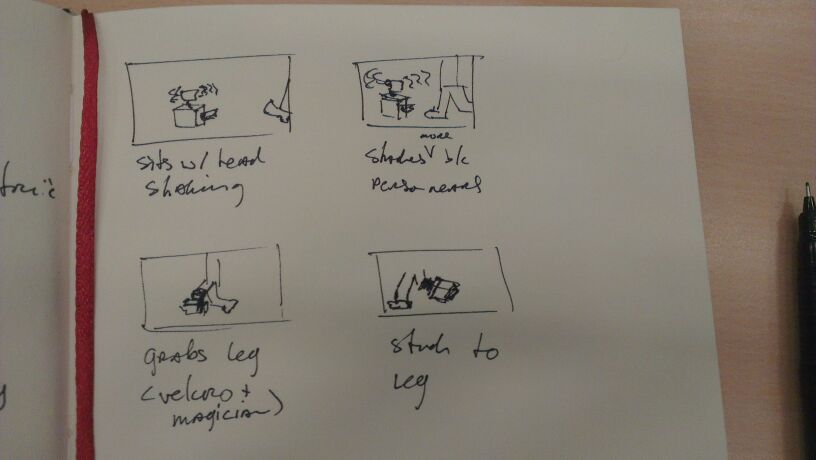 sits w/ head
shaking
shakes more b/c
person nears
grabs leg
(velcro +
magician)
stuck to
leg